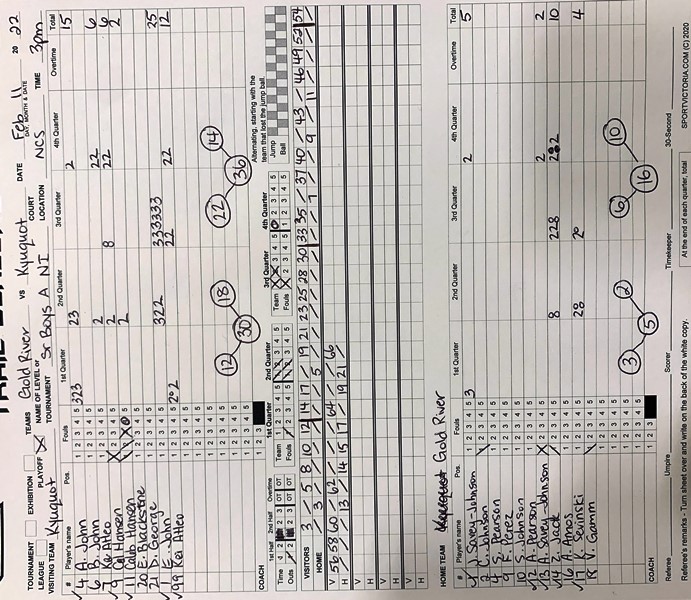 TOURNAMENT EXHIBITION TEAMS Gold River VS Kyuquot DATE Feb 11 20 22
DAY, MONTH & DATE
LEAGUE PLAYOFF X NAME OF LEVEL or TOURNAMENT Sr Boys A NI COURT LOCATION NCS TIME 3pm
VISITING TEAM Kyuquot
# Player's name Pos. Fouls 1st Quarter 2nd Quarter 3rd Quarter 4th Quarter Overtime Total
4 A. John 1 2 3 4 5 323 23 2 15
6 B. John 1 2 3 4 5 2 22 6
7 Ke Atleo 1 2 3 4 5 2 22 6
9 Cal Hansen 1 2 3 4 5 2 2
11 Calb Hansen 1 2 3 4 5
20 E. Blackstone 1 2 3 4 5
21 D. George 1 2 3 4 5 322 333333 25
E. John 1 2 3 4 5 22 22 22 12
99 Kei Atleo 1 2 3 4 5
COACH 1 2 3
12 18 30 22 14 36
1st Half 2nd Half Overtime 1st Quarter 2nd Quarter 3rd Quarter 4th Quarter
Alternating, starting with the team that lost the jump ball.
Time Outs Team Fouls Jump Ball
VISITORS 3 5 8 10 12 14 17 19 21 23 25 28 30 33 35 37 40 43 46 49 52 54
HOME 3 5 7 9 11
V 56 58 60 62 64 66
H 13 14 15 17 19 21
V
H
V
H
V
H
HOME TEAM Gold River
# Player's name Pos. Fouls 1st Quarter 2nd Quarter 3rd Quarter 4th Quarter Overtime Total
J. Savey-Johnson 1 2 3 4 5 3 2 5
2 C. Johnson 1 2 3 4 5
4 S. Pearson 1 2 3 4 5
9 F. Perez 1 2 3 4 5
10 S. Johnson 1 2 3 4 5
12 A. Pearson 1 2 3 4 5
13 A. Savey-Johnson 1 2 3 4 5 2 2
14 Z. Jack 1 2 3 4 5 10
16 A. Amos 1 2 3 4 5
17 K. Sevinski 1 2 3 4 5 4
18 V. Gamm 1 2 3 4 5
COACH 1 2 3
3 2 5 6 10 16
Referee Umpire Scorer Timekeeper 30-Second
Referee's remarks - Turn sheet over and write on the back of the white copy. At the end of each quarter, total SPORTVICTORIA.COM (C) 2020